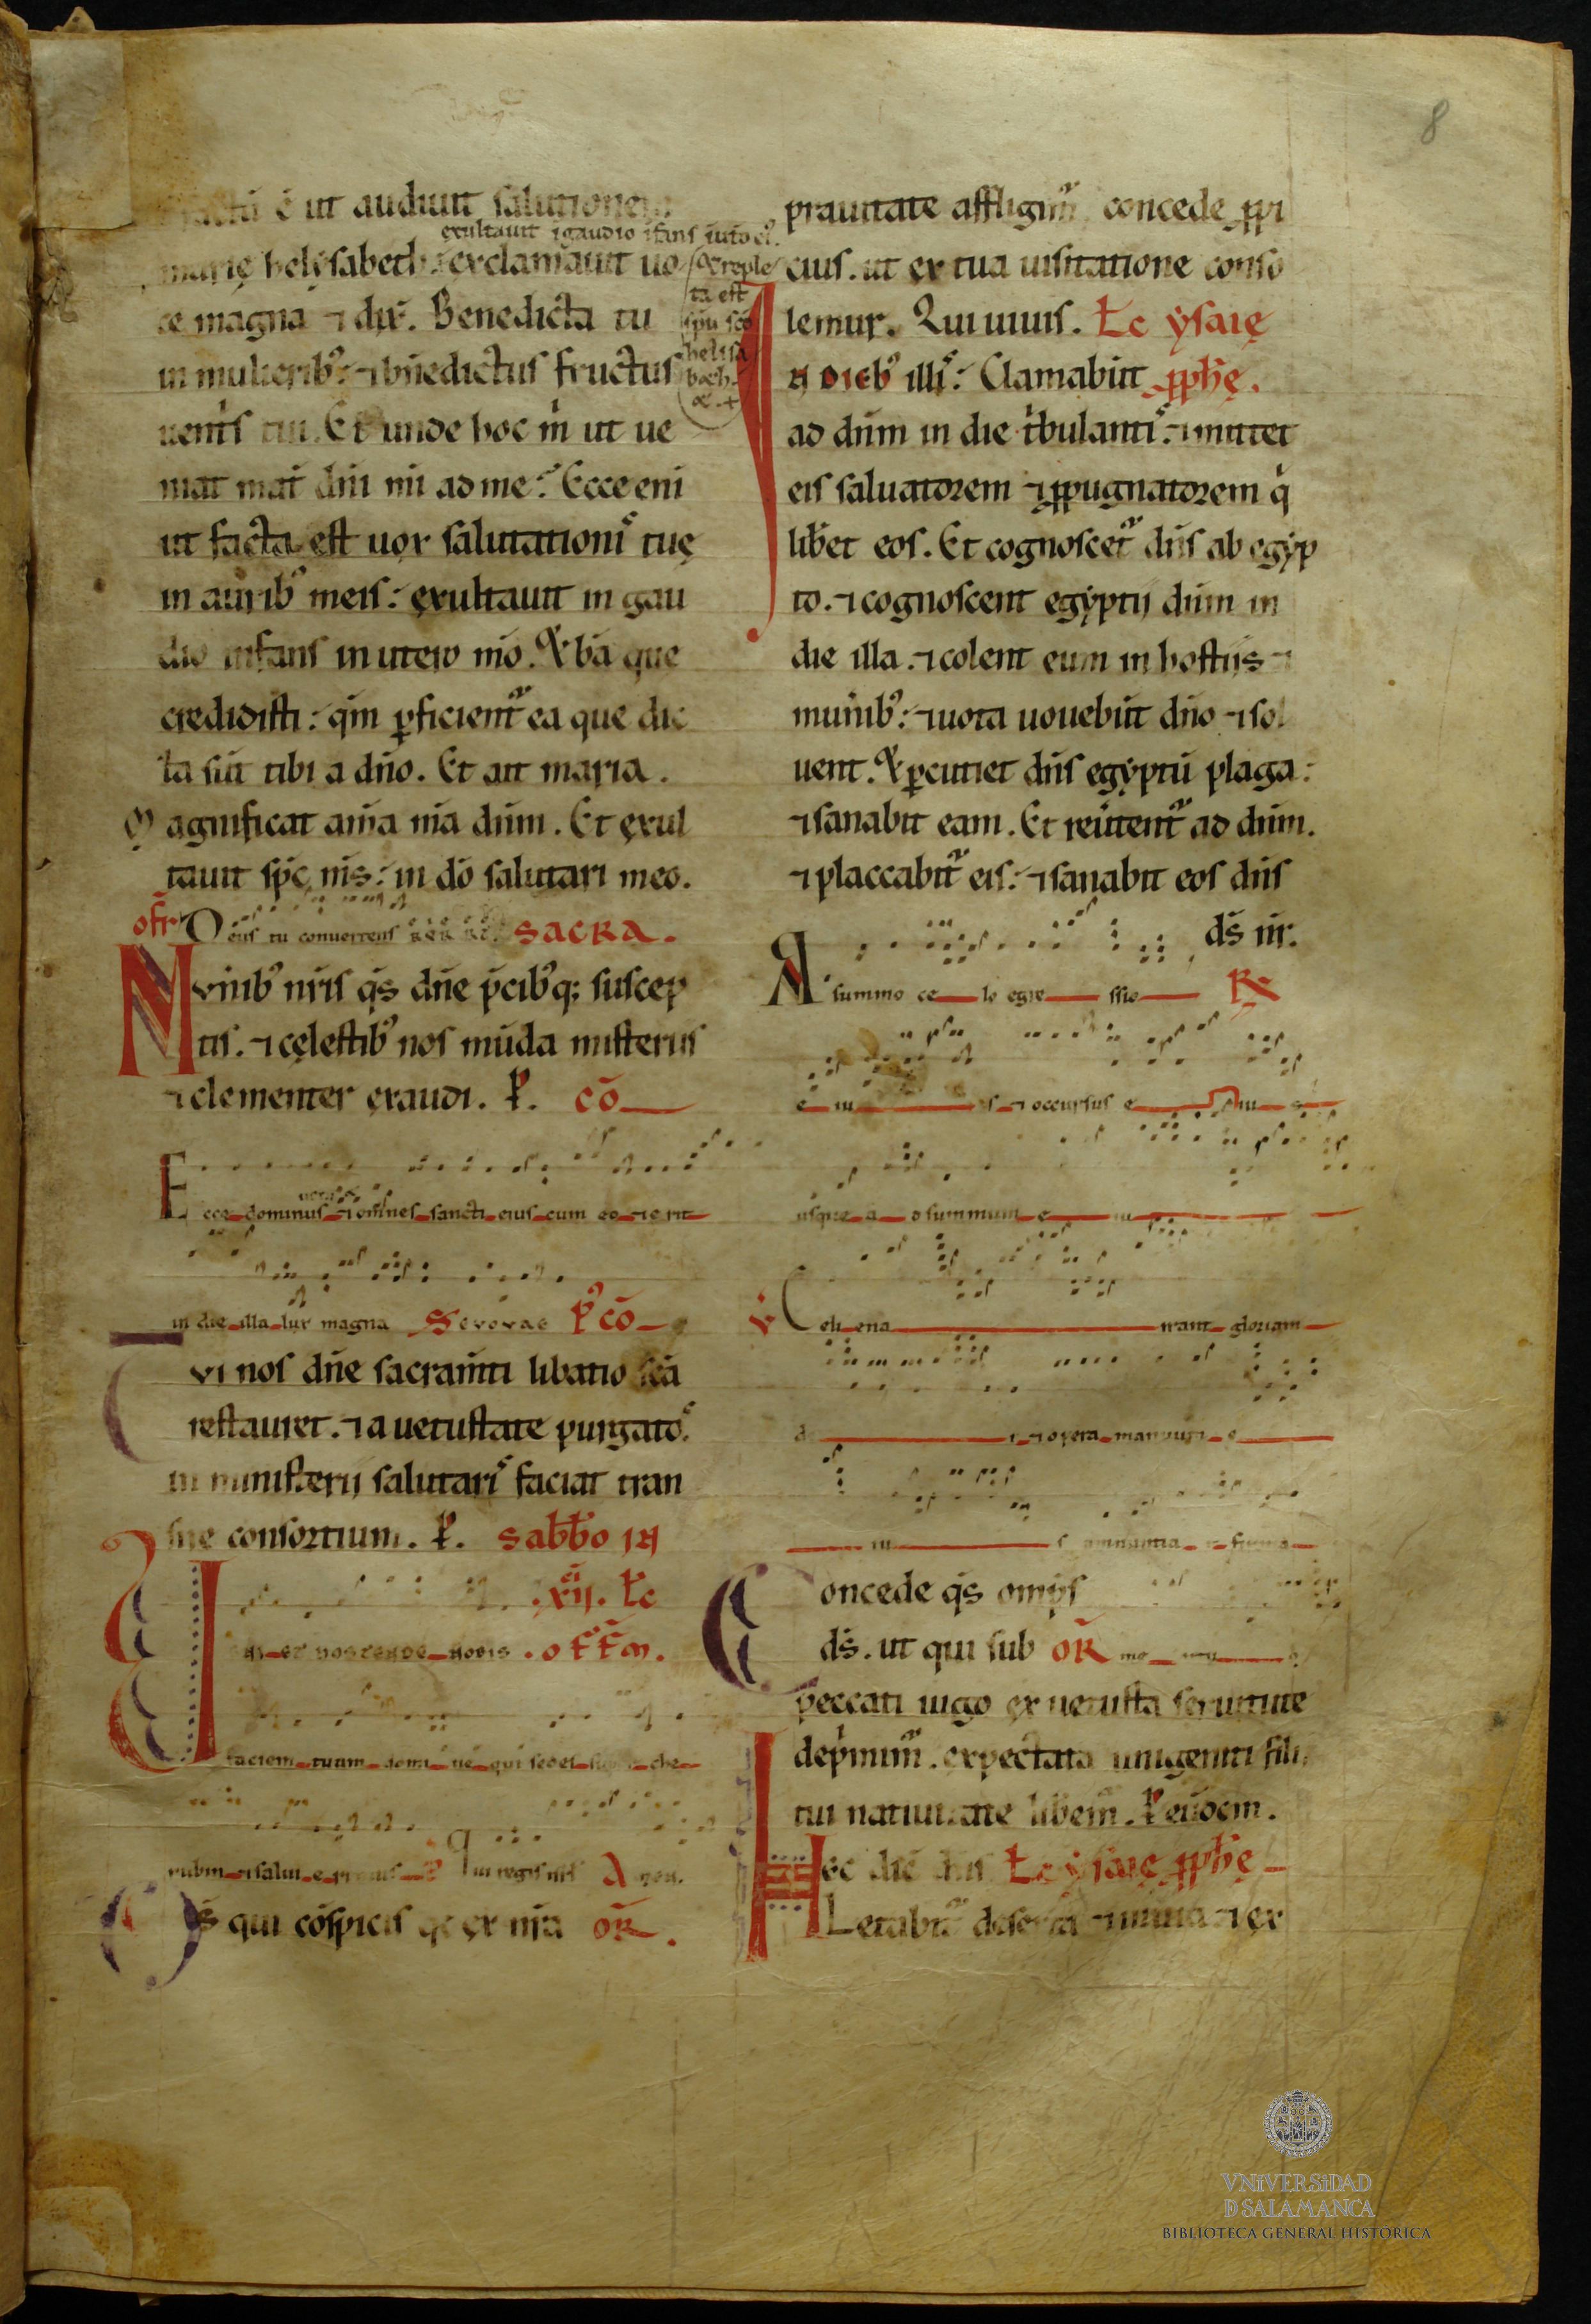 8
factū ē ut audiuit salutionem
exultauit ī gaudio īfans ī utō eiꝰ.
marię helysabeth: exclamauit uo
⁊ reple
ta est
sp̄u sc̄o
helisa
beth.
⁊.+
ce magna ⁊ dix̄. Benedicta tu
in mulieribꝰ: ⁊ bn̄edictus fructus
uent̄s tui. Et unde hoc m̄ ut ue
niat mat̄ dn̄i mī ad me? Ecce eni
ut facta est uox salutationis tuę
in auribꝰ meis: exultauit in gau
dio infans in utero mō. ⁊ bā que
credidisti: qm̄ ꝑficient̄ ea que dic
ta sūt tibi a dn̄o. Et ait maria.
Magnificat anīa mā dūm. Et exul
tauit sp̄c m̄s: in dō salutari meo.
off̄r Deus tu conuertens SACRA.
Mvnibꝰ nr̄is q̄s dn̄e p̄cibꝰq; suscep
tis. ⁊ cęlestibꝰ nos mūda misteriis
⁊ clementer exaudi. P. cō
Ecce dominus ⁊ om̄nes sancti eius cum eo ⁊ erit
in die illa lux magna Seuouae P̄ cō
Tvi nos dn̄e sacram̄ti libatio sc̄a
restauret. ⁊ a uetustate purgatos
in ministerii salutaris faciat tran
sire consortium. P. sabb̄o in
.xii. L̄c
Veni et hostende nobis . off̄m.
faciem tuam domine qui sedes super che
rubin ⁊ salui erimus P̄ Qui regis isr̄l A
Ds̄ qui cōspicis qa ex nr̄a oR̄.
prauitate affligim̄ concede ꝓpi
cius. ut ex tua uisitatione conso
lemur. Qui uiuis. L̄c ysaię
In diebꝰ illis: Clamabūt ꝓph̄ę.
ad dn̄m in die t̄bulantis: ⁊ mittet
eis saluatorem ⁊ ꝓpugnatorem q̄
lib̄et eos. Et cognoscet̄ dn̄s ab egyp
to. ⁊ cognoscent egyptii dn̄m in
die illa. ⁊ colent eum in hostiis ⁊
munībꝰ: ⁊ uota uouebūt dn̄o ⁊ sol
uent. ⁊ ꝑcutiet dn̄s egyptū plaga:
⁊ sanabit eam. Et reūtent̄ ad dn̄m.
⁊ placcabit̄ eis: ⁊ sanabit eos dn̄s
ds̄ nr̄.
A summo celo egressio R
eius ⁊ occursus eius
usque ad summum eius
V Celi enarrant gloriam
dei ⁊ opera manuum e
ius annuntia firma
Concede q̄s omp̄s
ds̄. ut qui sub oR̄ mentum
peccati iugo ex uetusta seruitute
dep̄mim̄. expectata unigeniti filii
tui natiuitate lib̄em̄. P̄ eūdem.
Hec dic̄ dn̄s L̄c ysaię ꝓph̄ę
Letabit̄ deserta ⁊ inuia ⁊ ex
VNiVERSiDAD
D SALAMANCA
BIBLIOTECA GENERAL HISTÓRICA